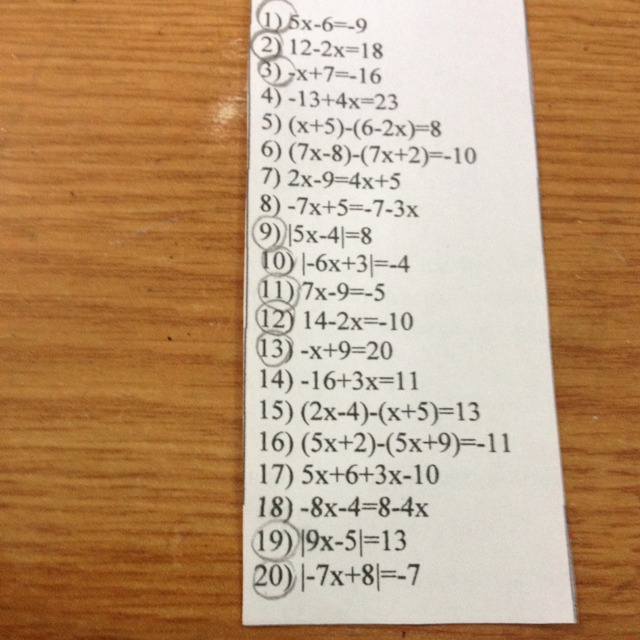 1) 5x-6=-9
2) 12-2x=18
3) -x+7=-16
4) -13+4x=23
5) (x+5)-(6-2x)=8
6) (7x-8)-(7x+2)=-10
7) 2x-9=4x+5
8) -7x+5=-7-3x
9) |5x-4|=8
10) |-6x+3|=-4
11) 7x-9=-5
12) 14-2x=-10
13) -x+9=20
14) -16+3x=11
15) (2x-4)-(x+5)=13
16) (5x+2)-(5x+9)=-11
17) 5x+6+3x-10
18) -8x-4=8-4x
19) |9x-5|=13
20) |-7x+8|=-7